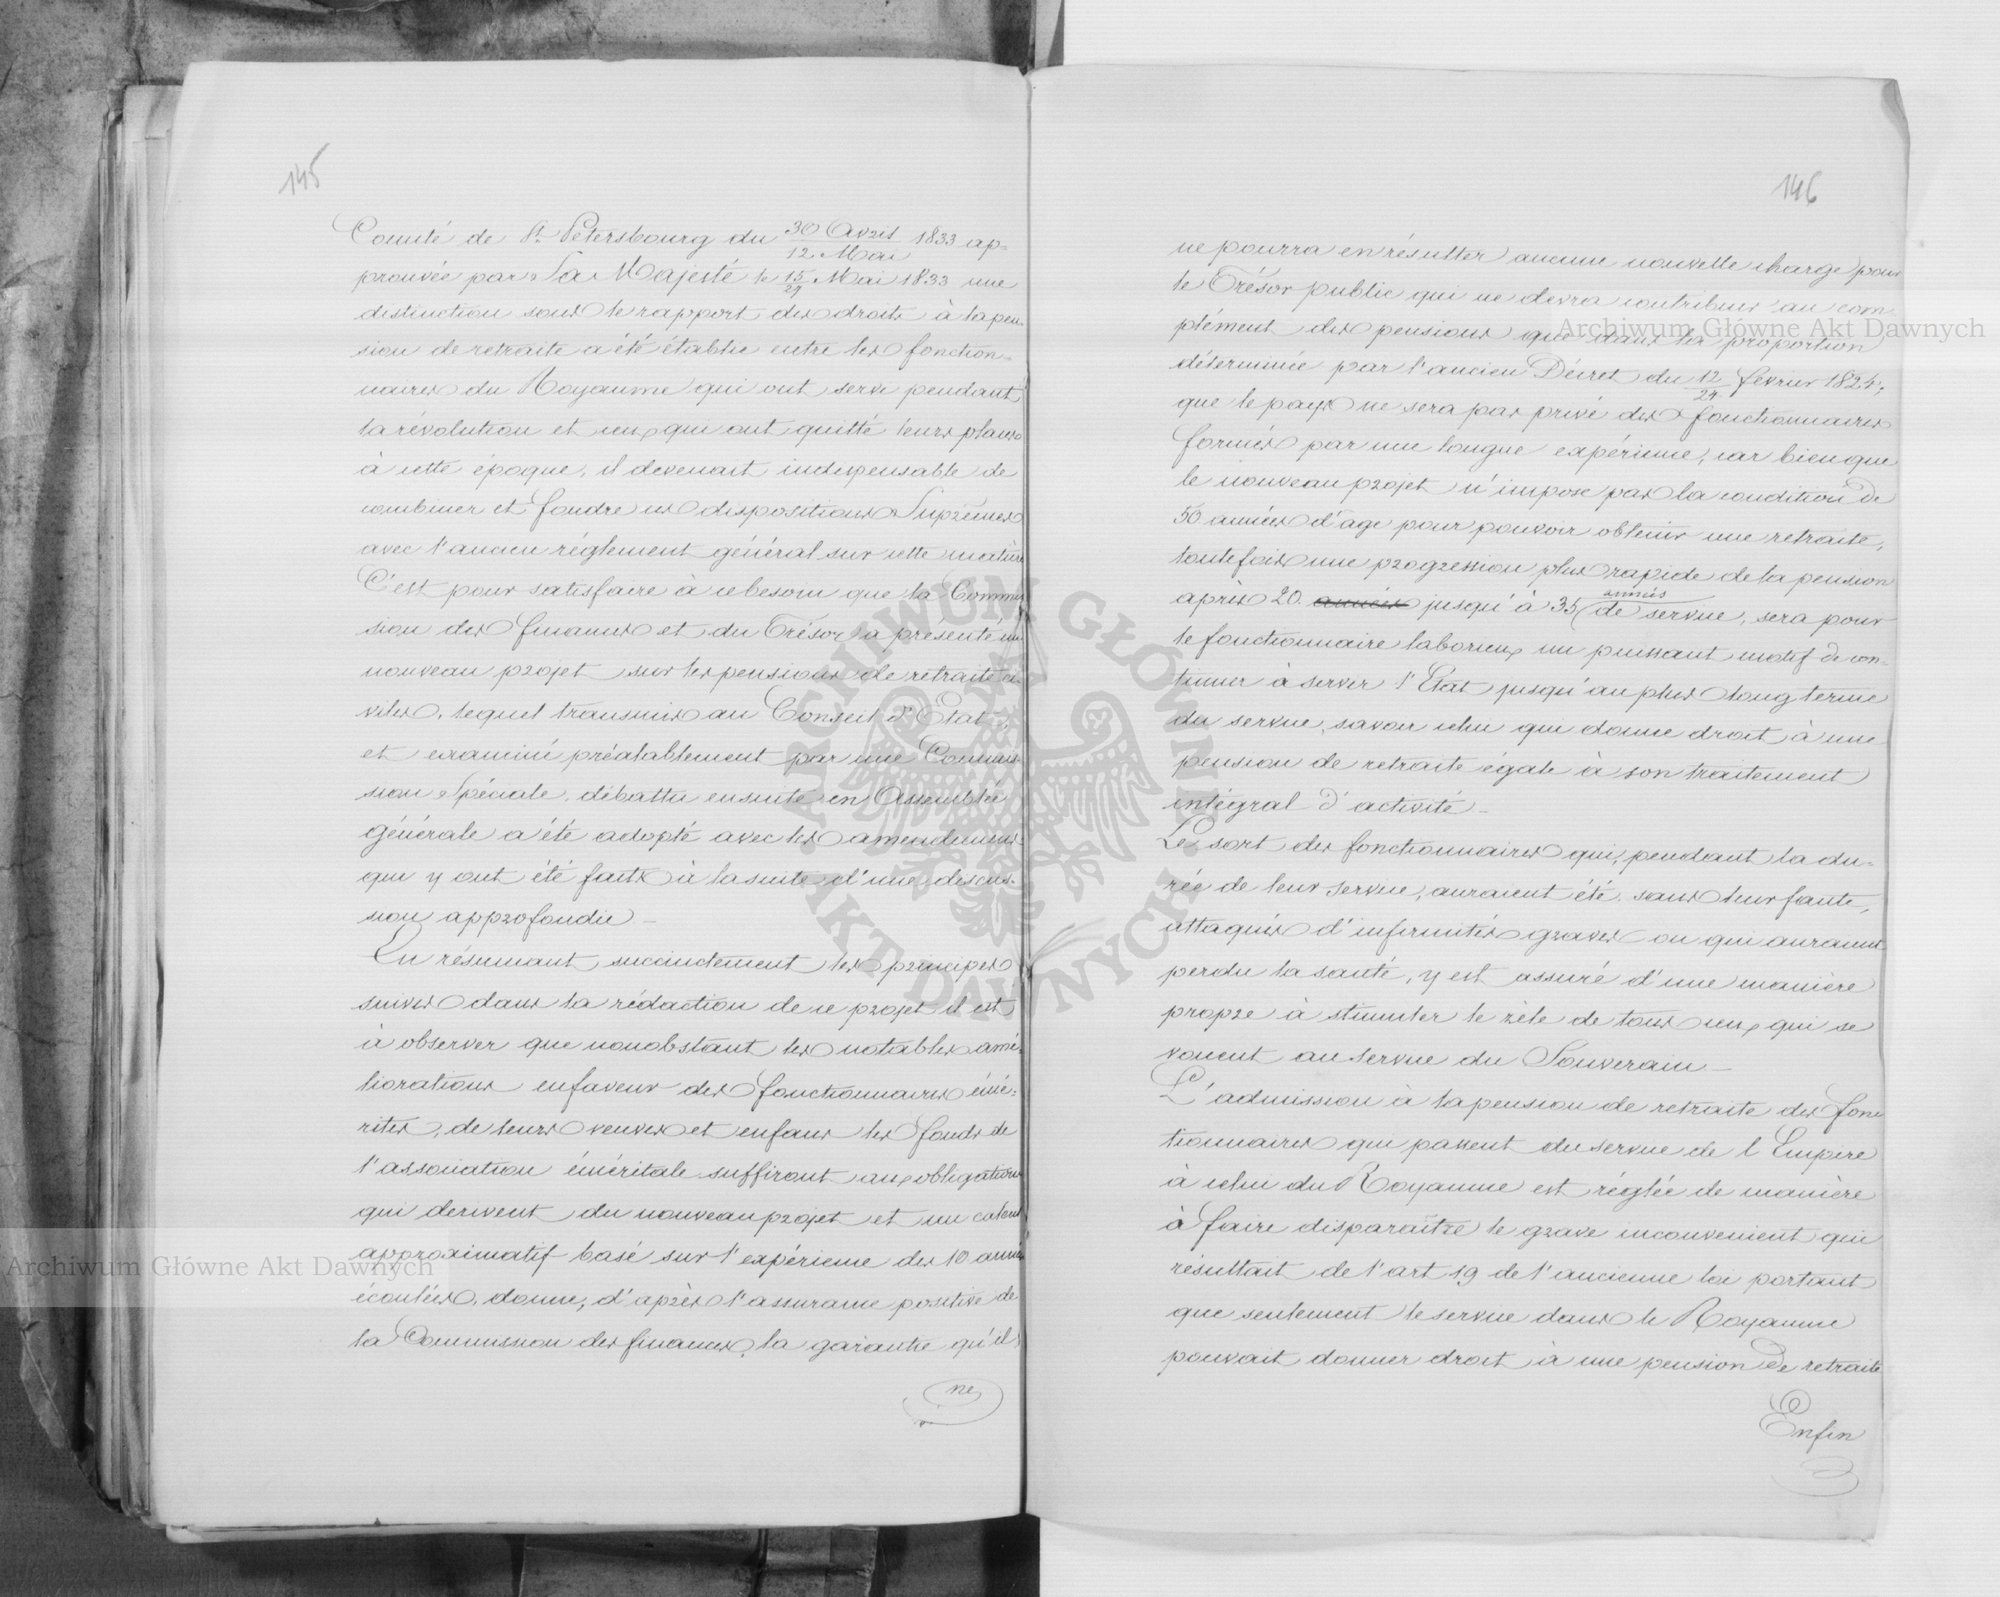 145
Comité de St. Petersbourg du 30 Avril / 12 Mai 1833 ap=
prouvée par Sa Majesté le 15/27 Mai 1833 une
distinction sous le rapport des droits à la pen-
sion de retraite a été établie entre les fonction=
naires du Royaume qui ont servi pendant
la révolution et ceux qui ont quitté leurs places
à cette époque, il devenait indispensable de
combiner et fondre ces dispositions Suprêmes
avec l'ancien réglement général sur cette matière
C'est pour satisfaire à ce besoin que la Commis
sion des finances et du Trésor a présenté un
nouveau projet sur les pensions de retraite ci-
viles, lequel transmis au Conseil d'Etat,
et examiné préalablement par une Commis-
sion Spéciale, débattu ensuite en Assemblée
générale a été adopté avec les amendemens
qui y ont été faits à la suite d'une discus-
sion approfondie –
En résumant succinctement les principes
suivis dans la rédaction de ce projet il est
à observer que nonobstant les notables amé-
liorations en faveur des fonctionnaires émé-
rites, de leurs veuves et enfans les fonds de
l'association éméritale suffiront aux obligations
qui derivent du nouveau projet et un calcul
approximatif basé sur l'expérience des 10 années
écoulées, donne, d'après l'assurance positive de
la Commission des finances, la garantie qu'il
ne
146
ne pourra en résulter aucune nouvelle charge pour
le Trésor public qui ne devra contribuer au com
plément des pensions que dans la proportion
déterminée par l'ancien Décret du 12/24 février 1824;
que le pays ne sera pas privé des fonctionnaires
formés par une longue expérience, car bien que
le nouveau projet n'impose pas la condition de
50 années d'age pour pouvoir obtenir une retraite,
toutefois une progression plus rapide de la pension
après 20 années jusqu'à 35 années de service, sera pour
le fonctionnaire laborieux un puissant motif de con-
tinuer à servir l'Etat jusqu'au plus long terme
du service, savoir celui qui donne droit à une
pension de retraite égale à son traitement
intégral d'activité –
Le sort des fonctionnaires qui, pendant la du-
rée de leur service, auraient été sans leur faute,
attaqués d'infirmités graves ou qui auraient
perdu la santé, y est assuré d'une manière
propre à stimuler le zèle de tous ceux qui se
vouent au service du Souverain –
L'admission à la pension de retraite des fonc
tionnaires qui passent du service de l'Empire
à celui du Royaume est réglée de manière
à faire disparaître le grave inconvenient qui
résultait de l'art 19 de l'ancienne loi portant
que seulement le service dans le Royaume
pouvait donner droit à une pension de retraite
Enfin
Archiwum Główne Akt Dawnych
Archiwum Główne Akt Dawnych
ARCHIWUM GŁÓWNE AKT DAWNYCH